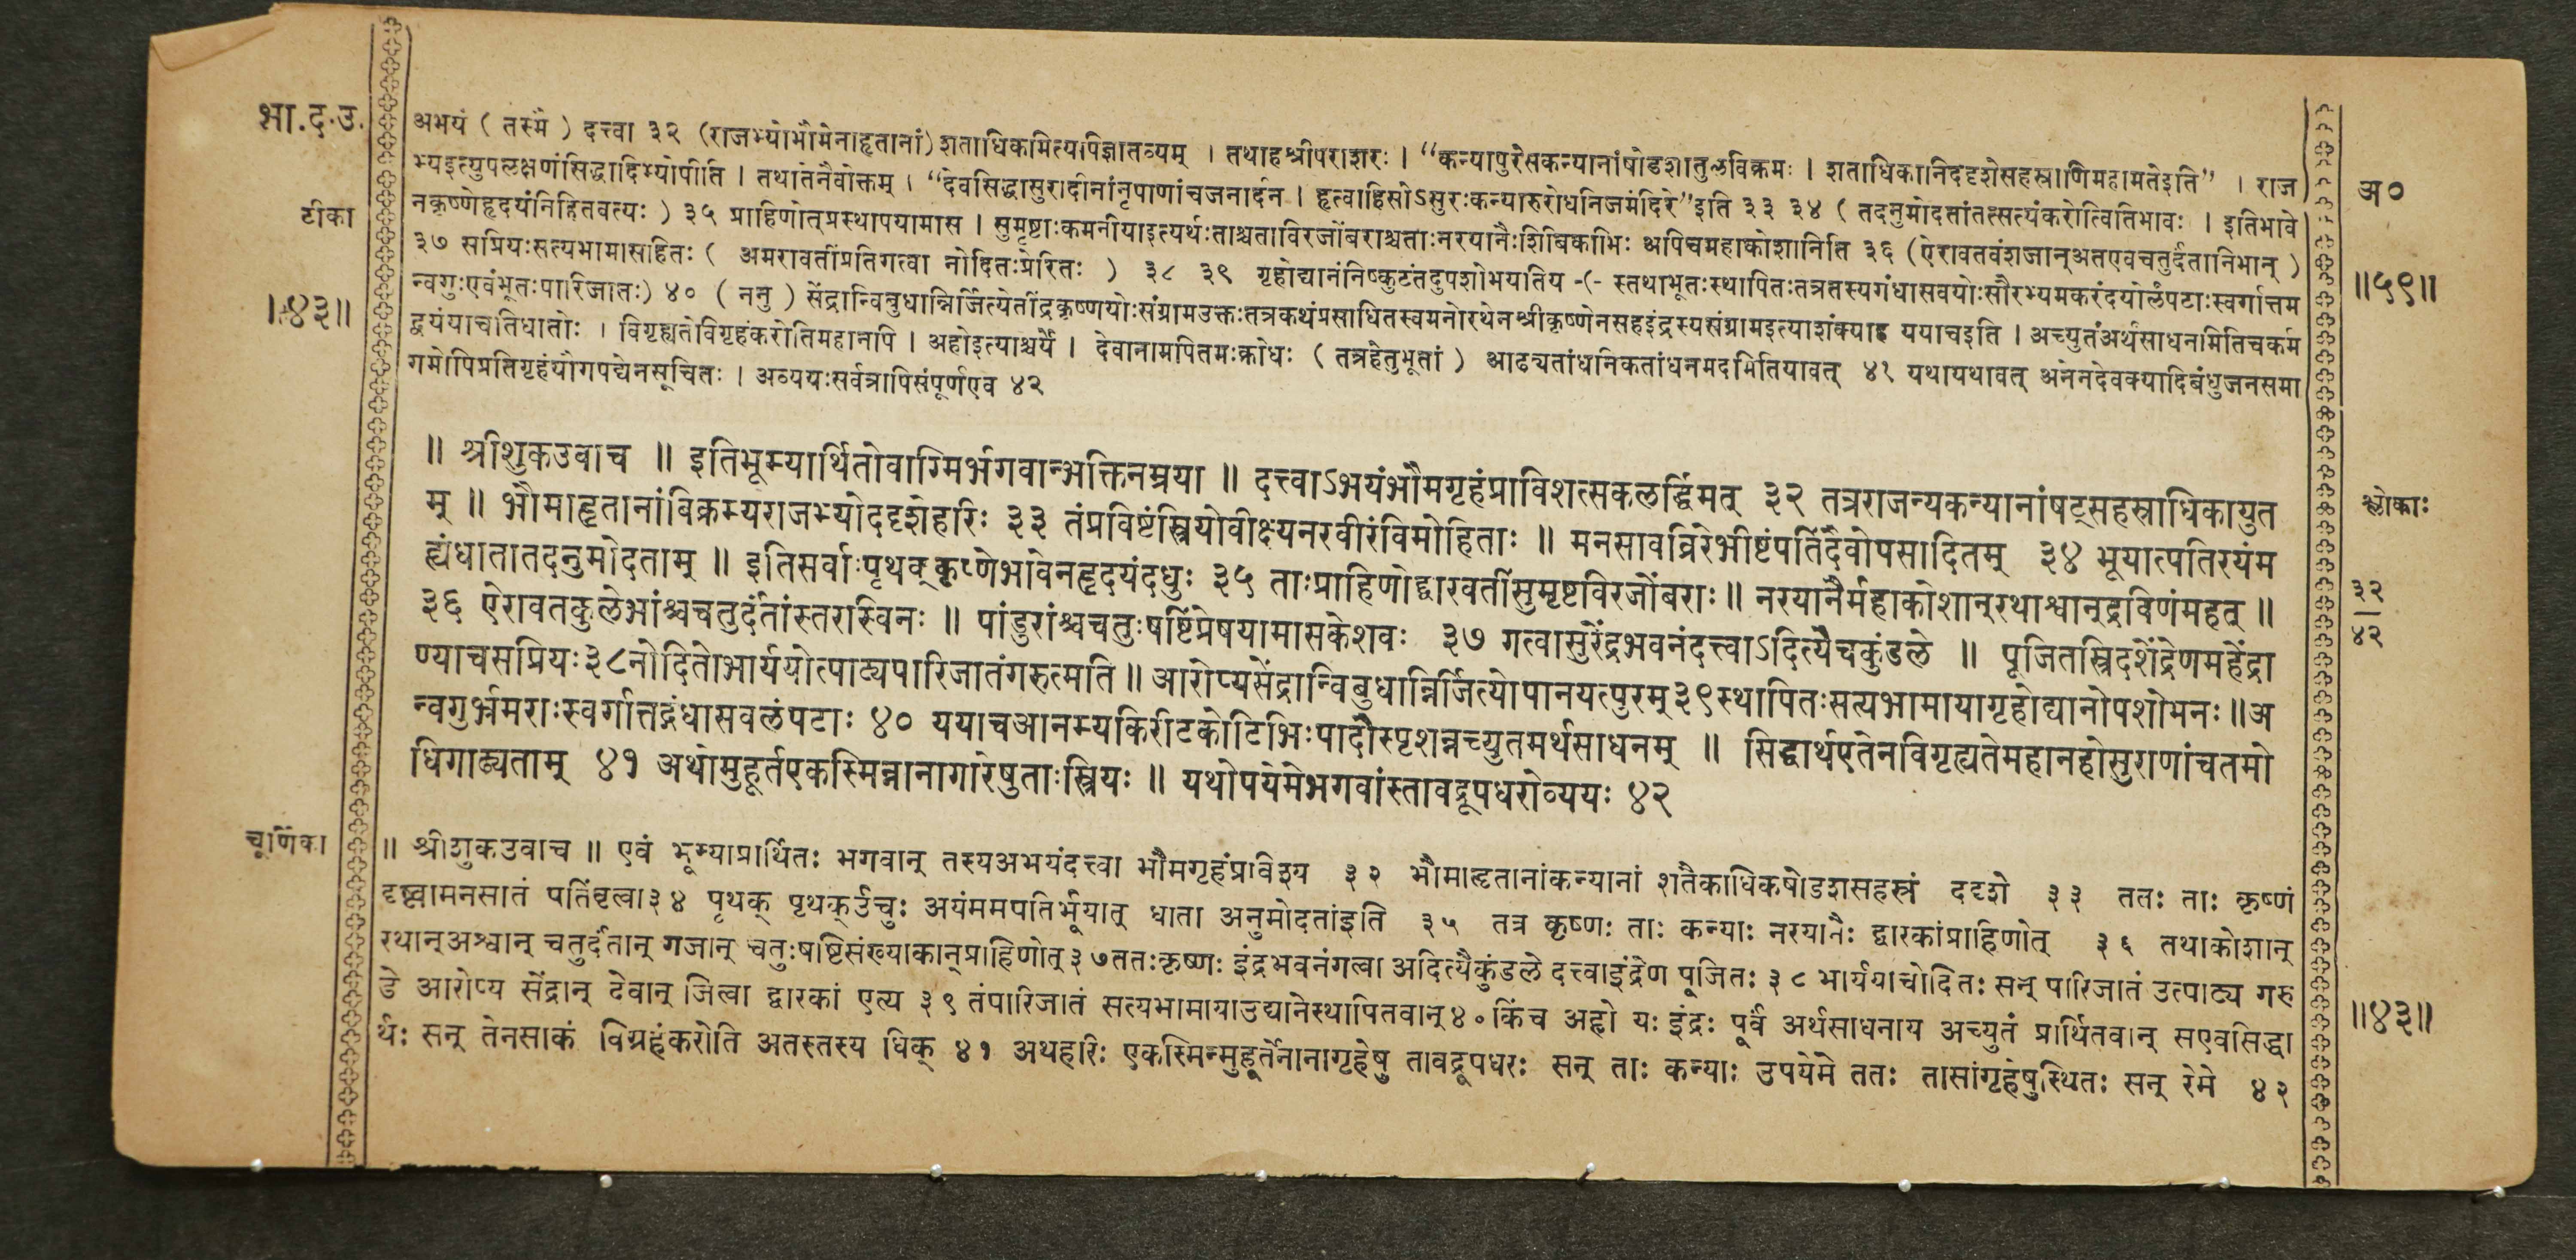 भा.द.उ.
टीका
॥४३॥
अभयं ( तस्मै ) दत्त्वा ३२ (राजभ्योभौमेनाहृतानां) शताधिकमित्यपिज्ञातव्यम् । तथाहश्रीपराशरः । “कन्यापुरेसकन्यानांषोडशातुलविक्रमः । शताधिकानिददृशेसहस्राणिमहामतेइति” । राज
भ्यइत्युपलक्षणंसिद्धादिभ्योपीति । तथातेनैवोक्तम् । “देवसिद्धासुरादीनांनृपाणांचजनार्दन । हृत्वाहिसोऽसुरःकन्यारुरोधनिजमंदिरे”इति ३३ ३४ ( तदनुमोदतांतत्सत्यंकरोत्वितिभावः । इतिभावे
नकृष्णेहृदयंनिहितवत्यः ) ३५ प्राहिणोत्प्रस्थापयामास । सुमृष्टाःकमनीयाइत्यर्थःताश्चताविरजोंबराश्चताःनरयानैःशिबिकाभिः अपिचमहाकोशानिति ३६ (ऐरावतवंशजान्अतएवचतुर्दंतानिभान् )
३७ सप्रियःसत्यभामासहितः ( अमरावतींप्रतिगत्वा नोदितःप्रेरितः ) ३८ ३९ गृहोद्यानंनिष्कुटंतदुपशोभयतिय -(- स्तथाभूतःस्थापितःतत्रतस्यगंधासवयोःसौरभ्यमकरंदयोर्लंपटाःस्वर्गात्तम
न्वगुःएवंभूतःपारिजातः) ४० ( ननु ) सेंद्रान्विबुधान्निर्जित्येतींद्रकृष्णयोःसंग्रामउक्तःतत्रकथंप्रसाधितस्वमनोरथेनश्रीकृष्णेनसहइंद्रस्यसंग्रामइत्याशंक्याह ययाचइति । अच्युतंअर्थसाधनमितिचकर्म
द्वयंयाचतिधातोः । विगृह्यतेविगृहंकरोतिमहानपि । अहोइत्याश्चर्ये । देवानामपितमःक्रोधः ( तत्रहेतुभूतां ) आढ्यतांधनिकतांधनमदमितियावत् ४१ यथायथावत् अनेनदेवक्यादिबंधुजनसमा
गमोपिप्रतिगृहंयौगपद्येनसूचितः । अव्ययःसर्वत्रापिसंपूर्णएव ४२
अ०
॥५९॥
॥ श्रीशुकउवाच ॥ इतिभूम्यार्थितोवाग्मिर्भगवान्भक्तिनम्रया ॥ दत्त्वाऽभयंभौमगृहंप्राविशत्सकलर्द्धिमत् ३२ तत्रराजन्यकन्यानांषट्सहस्राधिकायुत
म् ॥ भौमाहृतानांविक्रम्यराजभ्योददृशेहरिः ३३ तंप्रविष्टंस्त्रियोवीक्ष्यनरवीरंविमोहिताः ॥ मनसावव्रिरेभीष्टंपतिंदैवोपसादितम् ३४ भूयात्पतिरयंम
ह्यंधातातदनुमोदताम् ॥ इतिसर्वाःपृथक्कृष्णेभावेनहृदयंदधुः ३५ ताःप्राहिणोद्द्वारवतींसुमृष्टविरजोंबराः॥ नरयानैर्महाकोशान्रथाश्वान्द्रविणंमहत् ॥
३६ ऐरावतकुलेभांश्चचतुर्दंतांस्तरस्विनः ॥ पांडुरांश्चचतुःषष्टिंप्रेषयामासकेशवः ३७ गत्वासुरेंद्रभवनंदत्त्वाऽदित्यैचकुंडले ॥ पूजितस्त्रिदशेंद्रेणमहेंद्रा
ण्याचसप्रियः३८नोदितोभार्ययोत्पाट्यपारिजातंगरुत्मति॥आरोप्यसेंद्रान्विबुधान्निर्जित्योपानयत्पुरम्३९स्थापितःसत्यभामायागृहोद्यानोपशोभनः॥अ
न्वगुर्भ्रमराःस्वर्गात्तद्गंधासवलंपटाः ४० ययाचआनम्यकिरीटकोटिभिःपादौस्पृशन्नच्युतमर्थसाधनम् ॥ सिद्धार्थएतेनविगृह्यतेमहानहोसुराणांचतमो
धिगाढ्यताम् ४१ अथोमुहूर्तएकस्मिन्नानागारेषुताःस्त्रियः ॥ यथोपयेमेभगवांस्तावद्रूपधरोव्ययः ४२
श्लोकाः
३२
४२
चूर्णिका
॥ श्रीशुकउवाच ॥ एवं भूम्याप्रार्थितः भगवान् तस्यअभयंदत्त्वा भौमगृहंप्रविश्य ३२ भौमाहृतानांकन्यानां शतैकाधिकषोडशसहस्रं ददृशे ३३ ततः ताः कृष्णं
दृष्ट्वामनसातं पतिंवृत्वा३४ पृथक् पृथक्ऊचुः अयंममपतिर्भूयात् धाता अनुमोदतांइति ३५ तत्र कृष्णः ताः कन्याः नरयानैः द्वारकांप्राहिणोत् ३६ तथाकोशान्
रथान्अश्वान् चतुर्दंतान् गजान् चतुःषष्टिसंख्याकान्प्राहिणोत्३७ततःकृष्णः इंद्रभवनंगत्वा अदित्यैकुंडले दत्त्वाइंद्रेण पूजितः ३८ भार्ययाचोदितः सन् पारिजातं उत्पाट्य गरु
डे आरोप्य सेंद्रान् देवान् जित्वा द्वारकां एत्य ३९ तंपारिजातं सत्यभामायाउद्यानेस्थापितवान्४०किंच अहो यः इंद्रः पूर्वं अर्थसाधनाय अच्युतं प्रार्थितवान् सएवसिद्धा
र्थः सन् तेनसाकं विग्रहंकरोति अतस्तस्य धिक् ४१ अथहरिः एकस्मिन्मुहूर्तेनानागृहेषु तावद्रूपधरः सन् ताः कन्याः उपयेमे ततः तासांगृहेषुस्थितः सन् रेमे ४२
॥४३॥